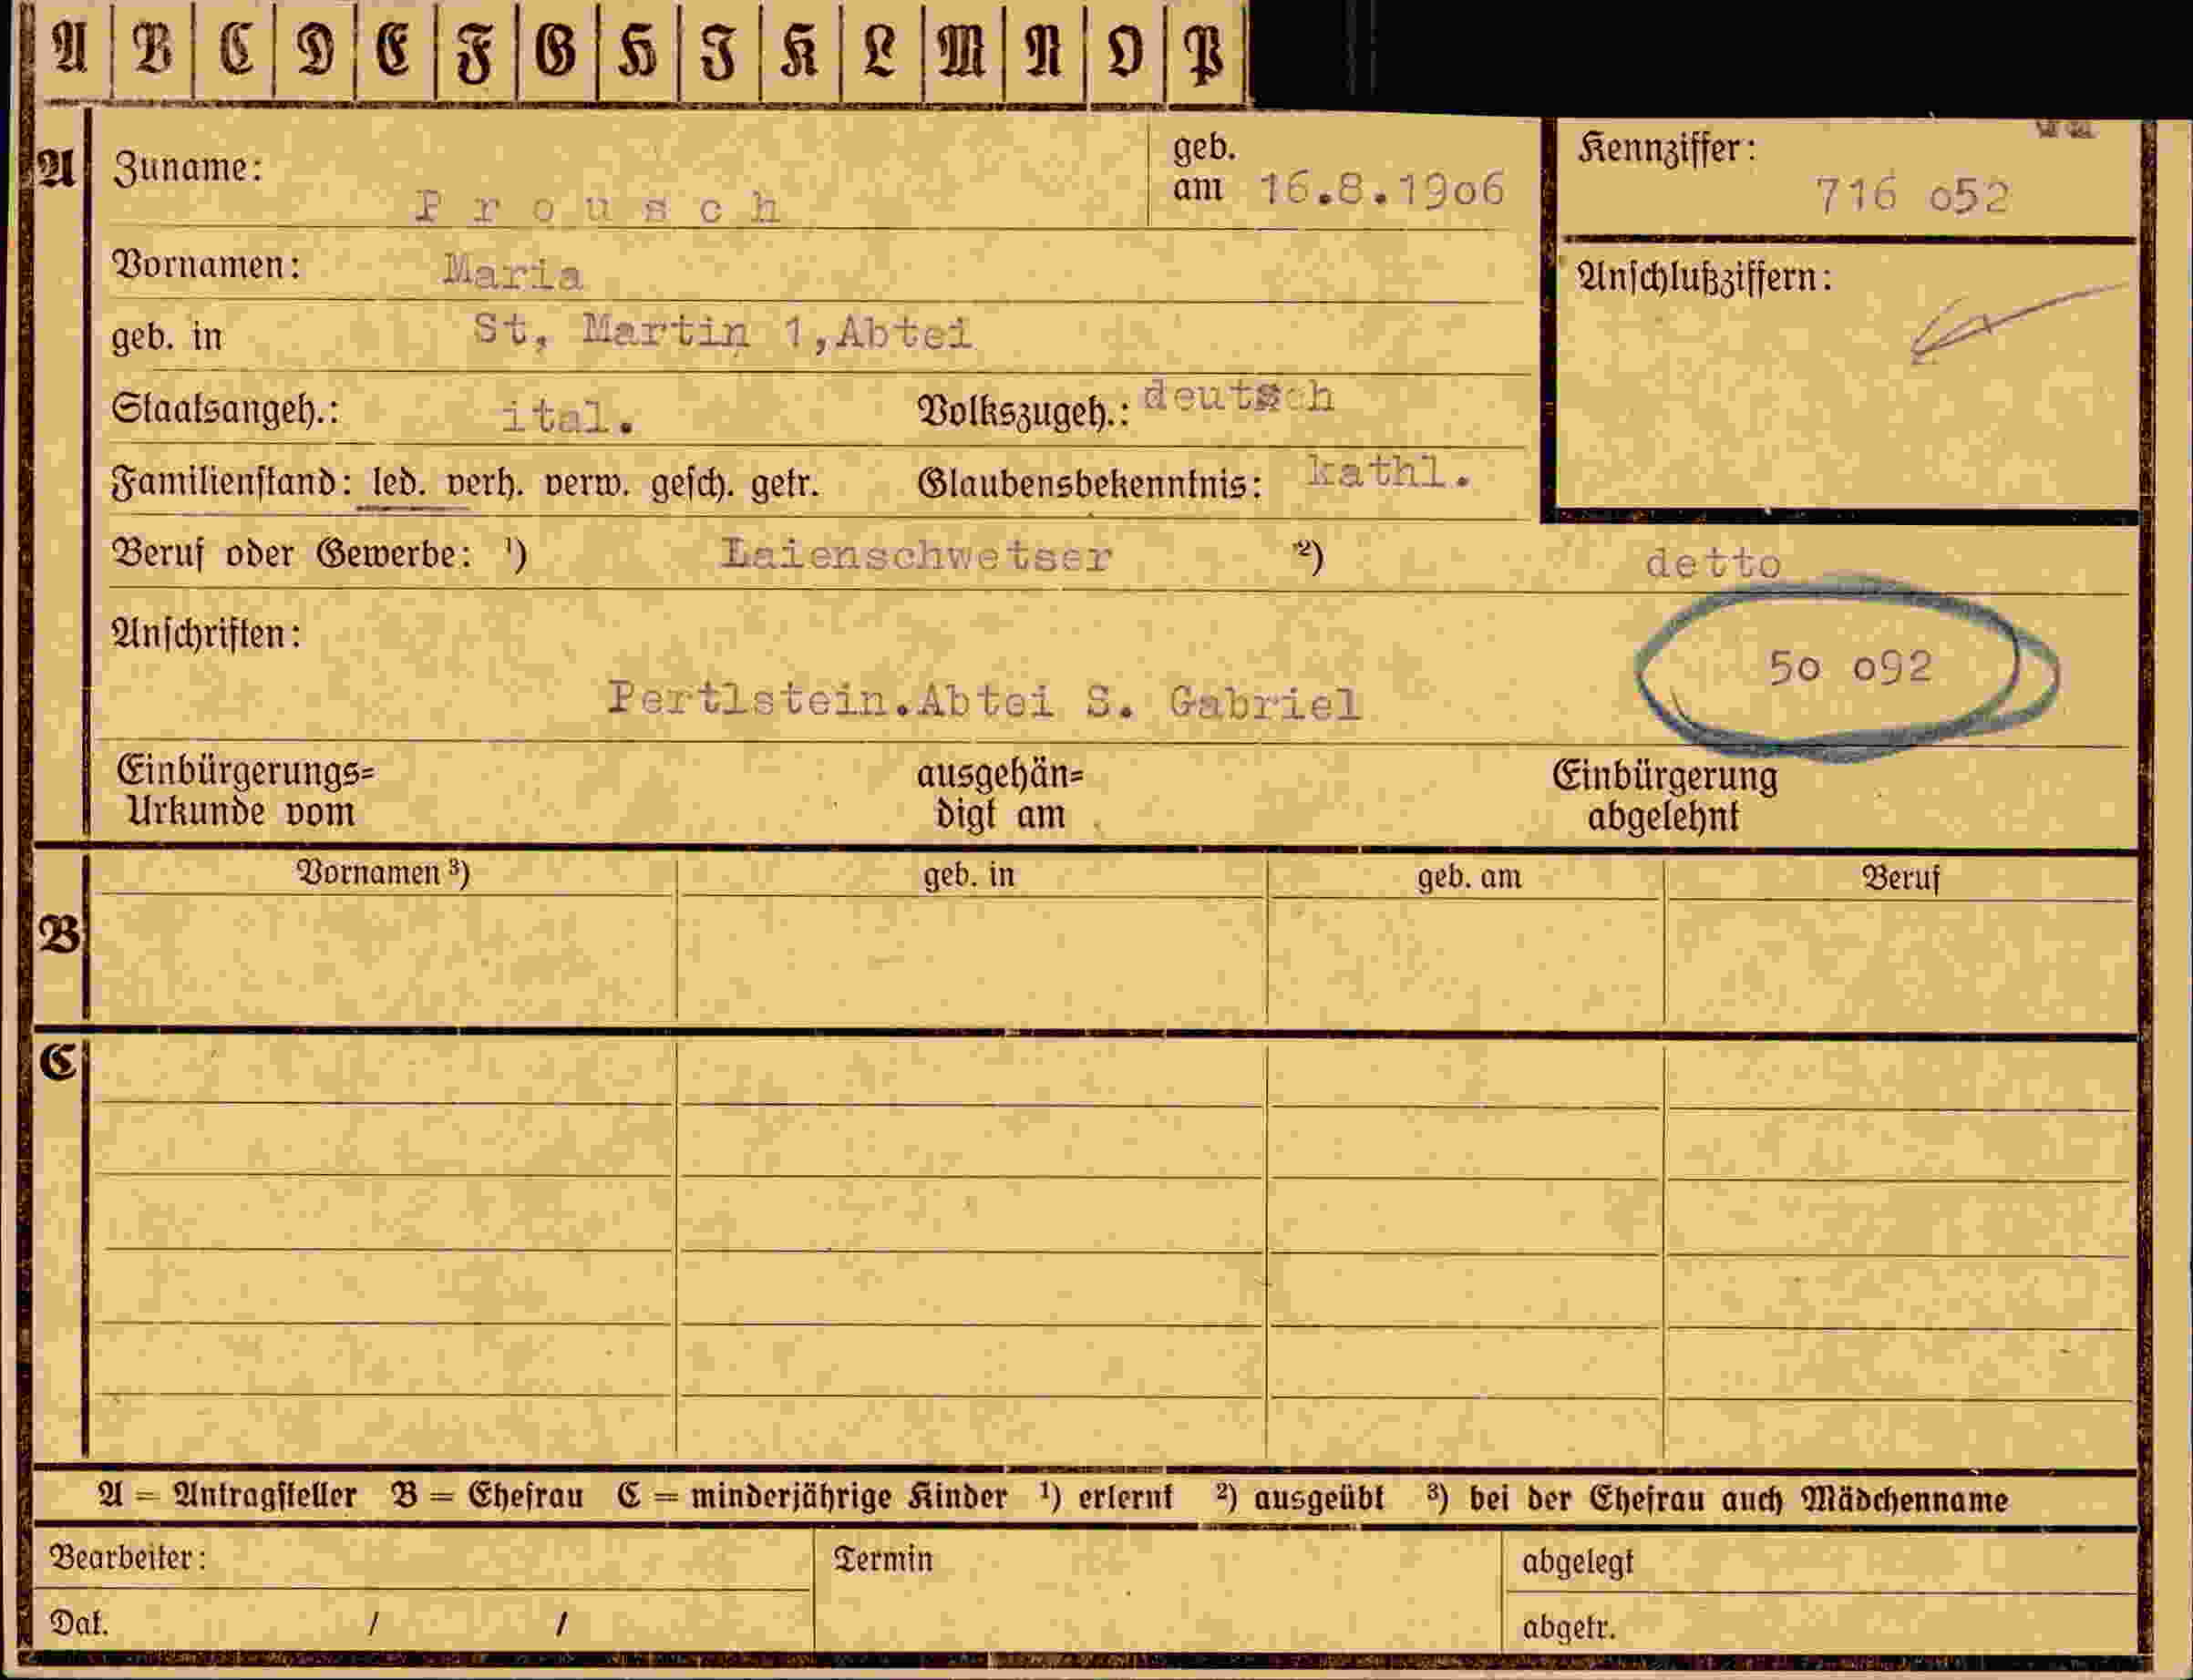 A B C D E F G H I K L M N O P
A Zuname: Prousch geb. am 16.8.1906
Kennziffer: 716 052
Vornamen: Maria
Anschlußziffern:
geb. in St, Martin 1,Abtei
Staatsangeh.: ital. Volkszugeh.: deutsch
Familienstand: led. verh. verw. gesch. getr. Glaubensbekenntnis: kathl.
Beruf oder Gewerbe: ¹) Laienschwetser ²) detto
Anschriften:
50 092
Pertlstein.Abtei S. Gabriel
Einbürgerungs= ausgehän= Einbürgerung
Urkunde vom digt am abgelehnt
Vornamen ³) geb. in geb. am Beruf
B
C
A = Antragsteller B = Ehefrau C = minderjährige Kinder ¹) erlernt ²) ausgeübt ³) bei der Ehefrau auch Mädchenname
Bearbeiter: Termin abgelegt
Dat. / / abgetr.